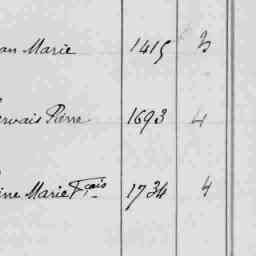 an Marie 1415 3
ervais Pierre 1693 4
ine Marie Fçois 1734 4